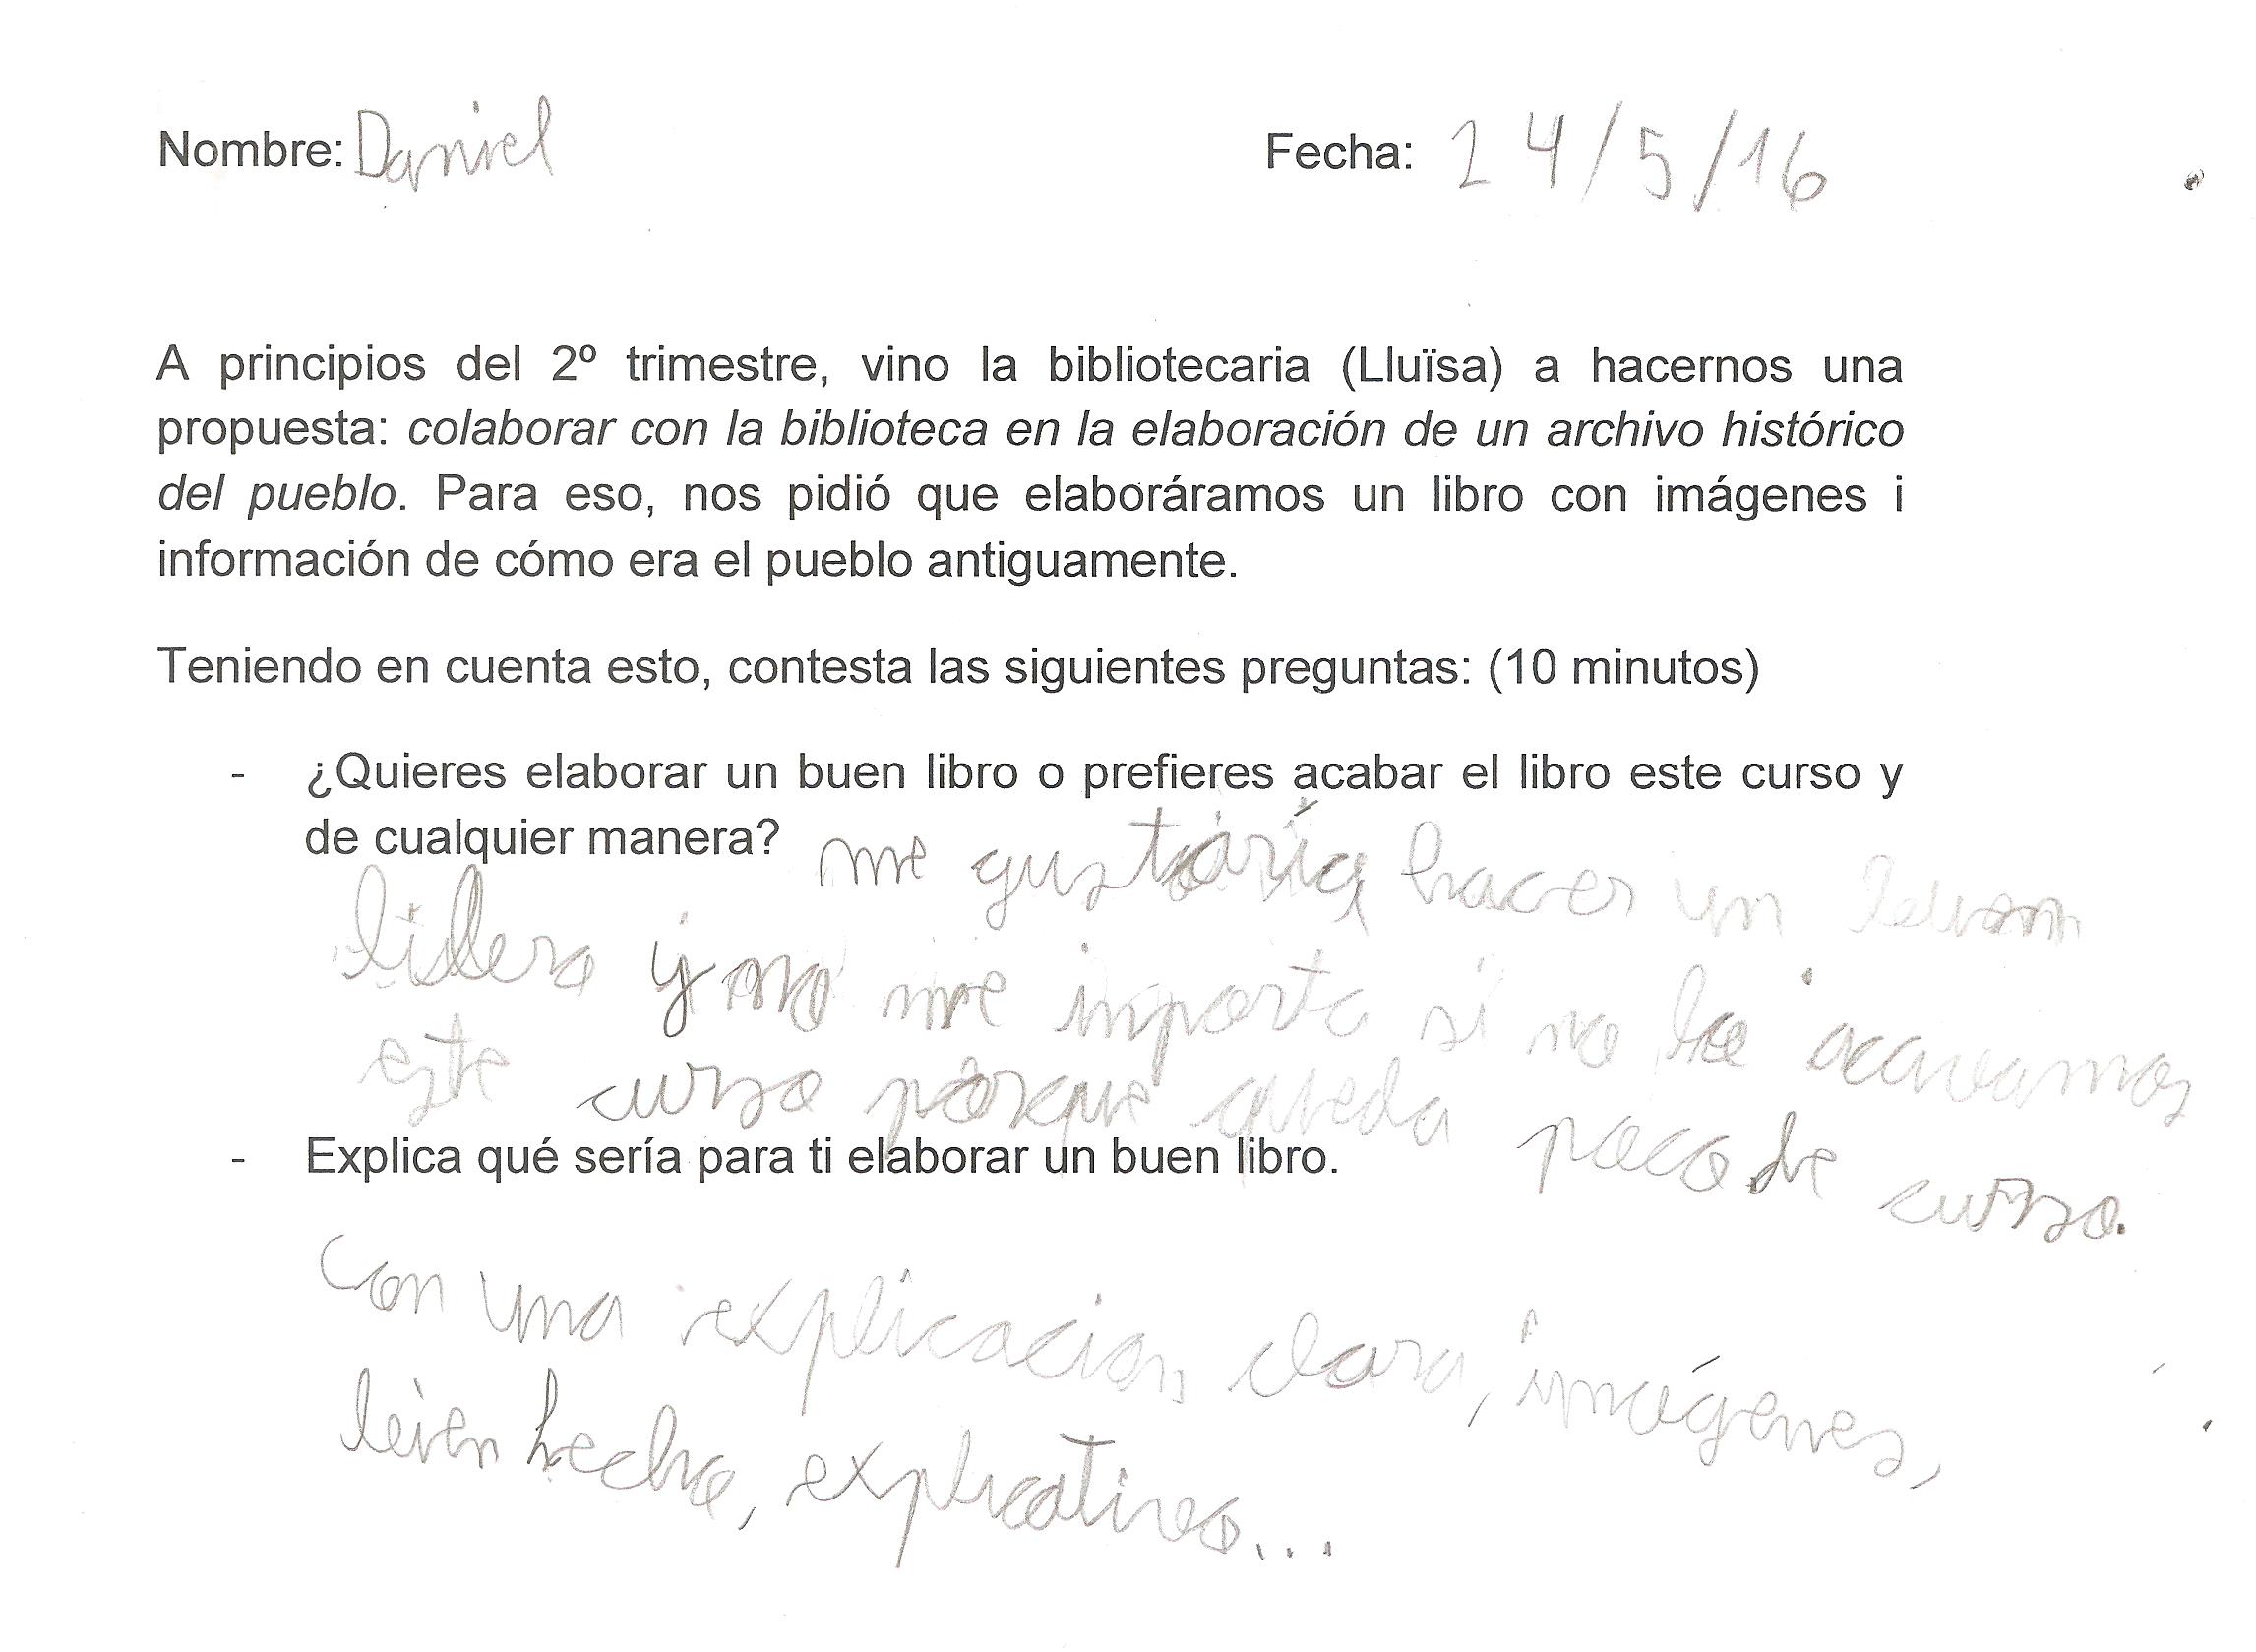 Nombre: Daniel Fecha: 24/5/16
A principios del 2º trimestre, vino la bibliotecaria (Lluïsa) a hacernos una
propuesta: colaborar con la biblioteca en la elaboración de un archivo histórico
del pueblo. Para eso, nos pidió que elaboráramos un libro con imágenes i
información de cómo era el pueblo antiguamente.
Teniendo en cuenta esto, contesta las siguientes preguntas: (10 minutos)
- ¿Quieres elaborar un buen libro o prefieres acabar el libro este curso y
de cualquier manera? me gustaría hacer un buen
libro y no me importa si no lo acavamos
este curso porque queda poco de curso.
- Explica qué sería para ti elaborar un buen libro.
Con una explicación clara, imágenes,
bien hecho, explicativo...